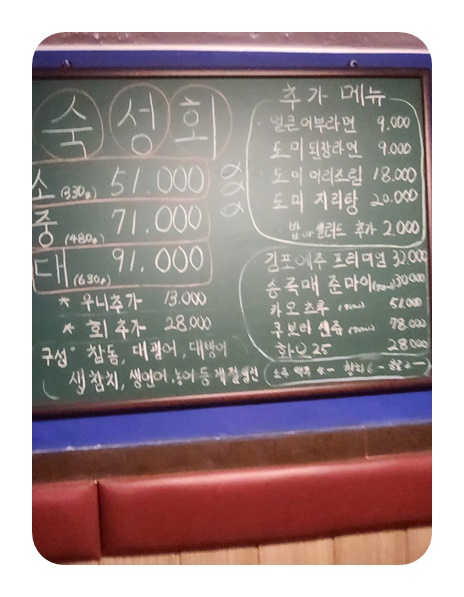 숙성회
소 (330g) 51.000
중 (480g) 71.000
대 (630g) 91.000
* 우니추가 13.000
* 회 추가 28.000
구성" 참돔, 대광어, 대방어
생참치, 생연어, 농어 등 제철생선
추가 메뉴
얼큰 어부라면 9.000
도미 된장라면 9.000
도미 머리조림 18.000
도미 지리탕 20.000
밥 or 샐러드 추가 2.000
김포 예주 프리미엄 32.000
송록매 준마이 30.000
카오츠루 51.000
쿠보타 센쥬 78.000
화요 25 28.000
소주 맥주